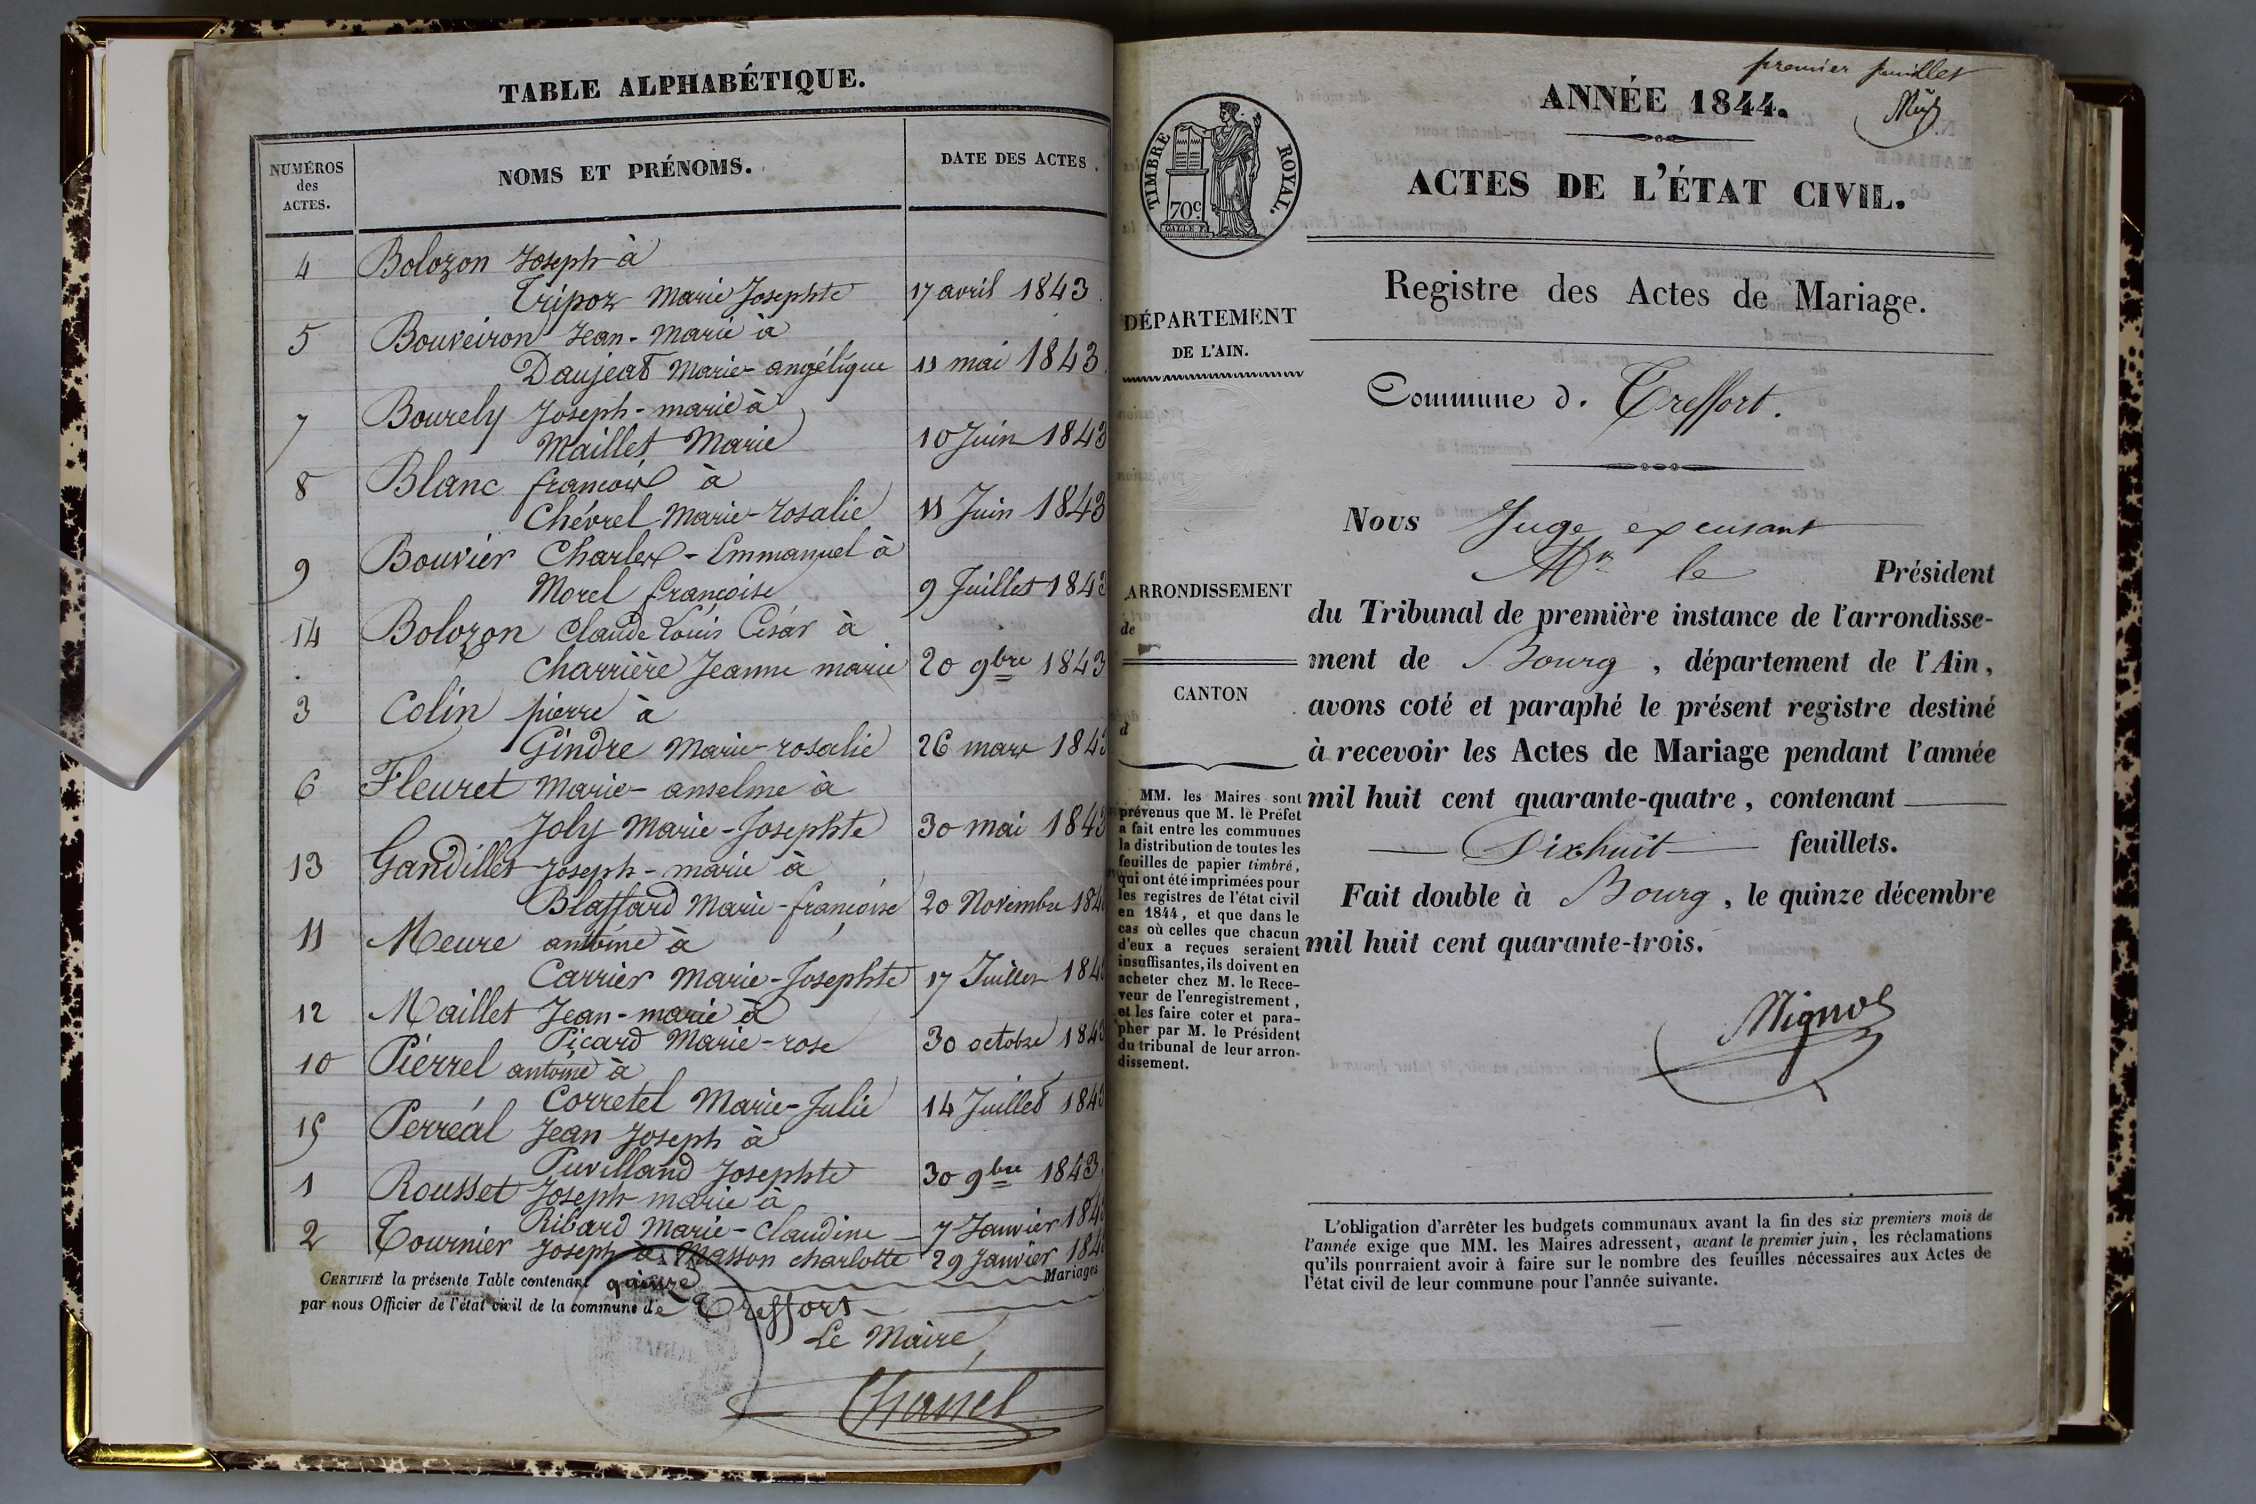 TABLE ALPHABÉTIQUE.
NUMÉROS
des
ACTES.
NOMS ET PRÉNOMS.
DATE DES ACTES.
4 Bolozon Joseph à
Tripoz Marie Josephte 17 avril 1843.
5 Bouveiron Jean-Marie à
Daujeat Marie-angélique 11 mai 1843.
7 Bourely Joseph-marie à
Maillet Marie 10 Juin 1843
8 Blanc françois à
Chévrel Marie-rosalie 11 Juin 1843
9 Bouvier Charles-Emmanuel à
Morel françoise 9 Juillet 1843
14 Bolozon Claude Louis César à
Charrière Jeanne marie 20 9bre 1843
3 Colin pierre à
Gindre Marie-rosalie 26 mars 1843
6 Fleuret Marie-anselme à
Joly Marie-Josephte 30 mai 1843
13 Gandillet Joseph-marie à
Blaffard Marie-françoise 20 Novembre 184
11 Meure antoine à
Carrier Marie-Josephte 17 Juillet 184
12 Maillet Jean-marie à
Picard Marie-rose 30 octobre 1843
10 Piérrel antoine à
Corretel Marie-Julie 14 Juillet 1843
15 Perréal Jean Joseph à
Puvilland Josephte 30 9bre 1843
1 Rousset Joseph marie à
Ribard Marie-Claudine 7 Janvier 184
2 Tournier Joseph à Masson charlotte 29 Janvier 184
CERTIFIÉ la présente Table contenant quinze Mariages
par nous Officier de l'état civil de la commune de Treffort
Le Maire,
Chanel
premier feuillet
ANNÉE 1844.
TIMBRE ROYAL.
70c
ACTES DE L'ÉTAT CIVIL.
Registre des Actes de Mariage.
DÉPARTEMENT
DE L'AIN.
Commune d. Treffort.
Nous Juge excusant
Mr le Président
ARRONDISSEMENT
de
du Tribunal de première instance de l'arrondisse-
ment de Bourg, département de l'Ain,
CANTON
d
avons coté et paraphé le présent registre destiné
à recevoir les Actes de Mariage pendant l'année
mil huit cent quarante-quatre, contenant
Dixhuit feuillets.
Fait double à Bourg, le quinze décembre
mil huit cent quarante-trois.
Mignot
MM. les Maires sont
prévenus que M. le Préfet
a fait entre les communes
la distribution de toutes les
feuilles de papier timbré,
qui ont été imprimées pour
les registres de l'état civil
en 1844, et que dans le
cas où celles que chacun
d'eux a reçues seraient
insuffisantes, ils doivent en
acheter chez M. le Rece-
veur de l'enregistrement,
et les faire coter et para-
pher par M. le Président
du tribunal de leur arron-
dissement.
L'obligation d'arrêter les budgets communaux avant la fin des six premiers mois de
l'année exige que MM. les Maires adressent, avant le premier juin, les réclamations
qu'ils pourraient avoir à faire sur le nombre des feuilles nécessaires aux Actes de
l'état civil de leur commune pour l'année suivante.